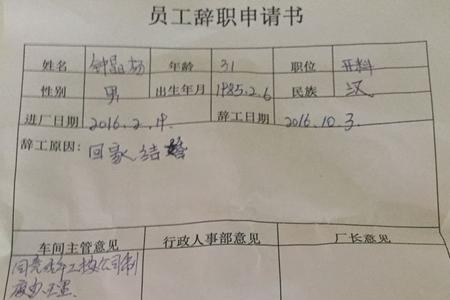 员工辞职申请书
姓名 钟昌杨 年龄 31 职位 开料
性别 男 出生年月 1985.2.6 民族 汉
进厂日期 2016.2.19. 辞工日期 2016.10.3
辞工原因: 回家结婚
车间主管意见 行政人事部意见 厂长意见
同意 按公司制
度办